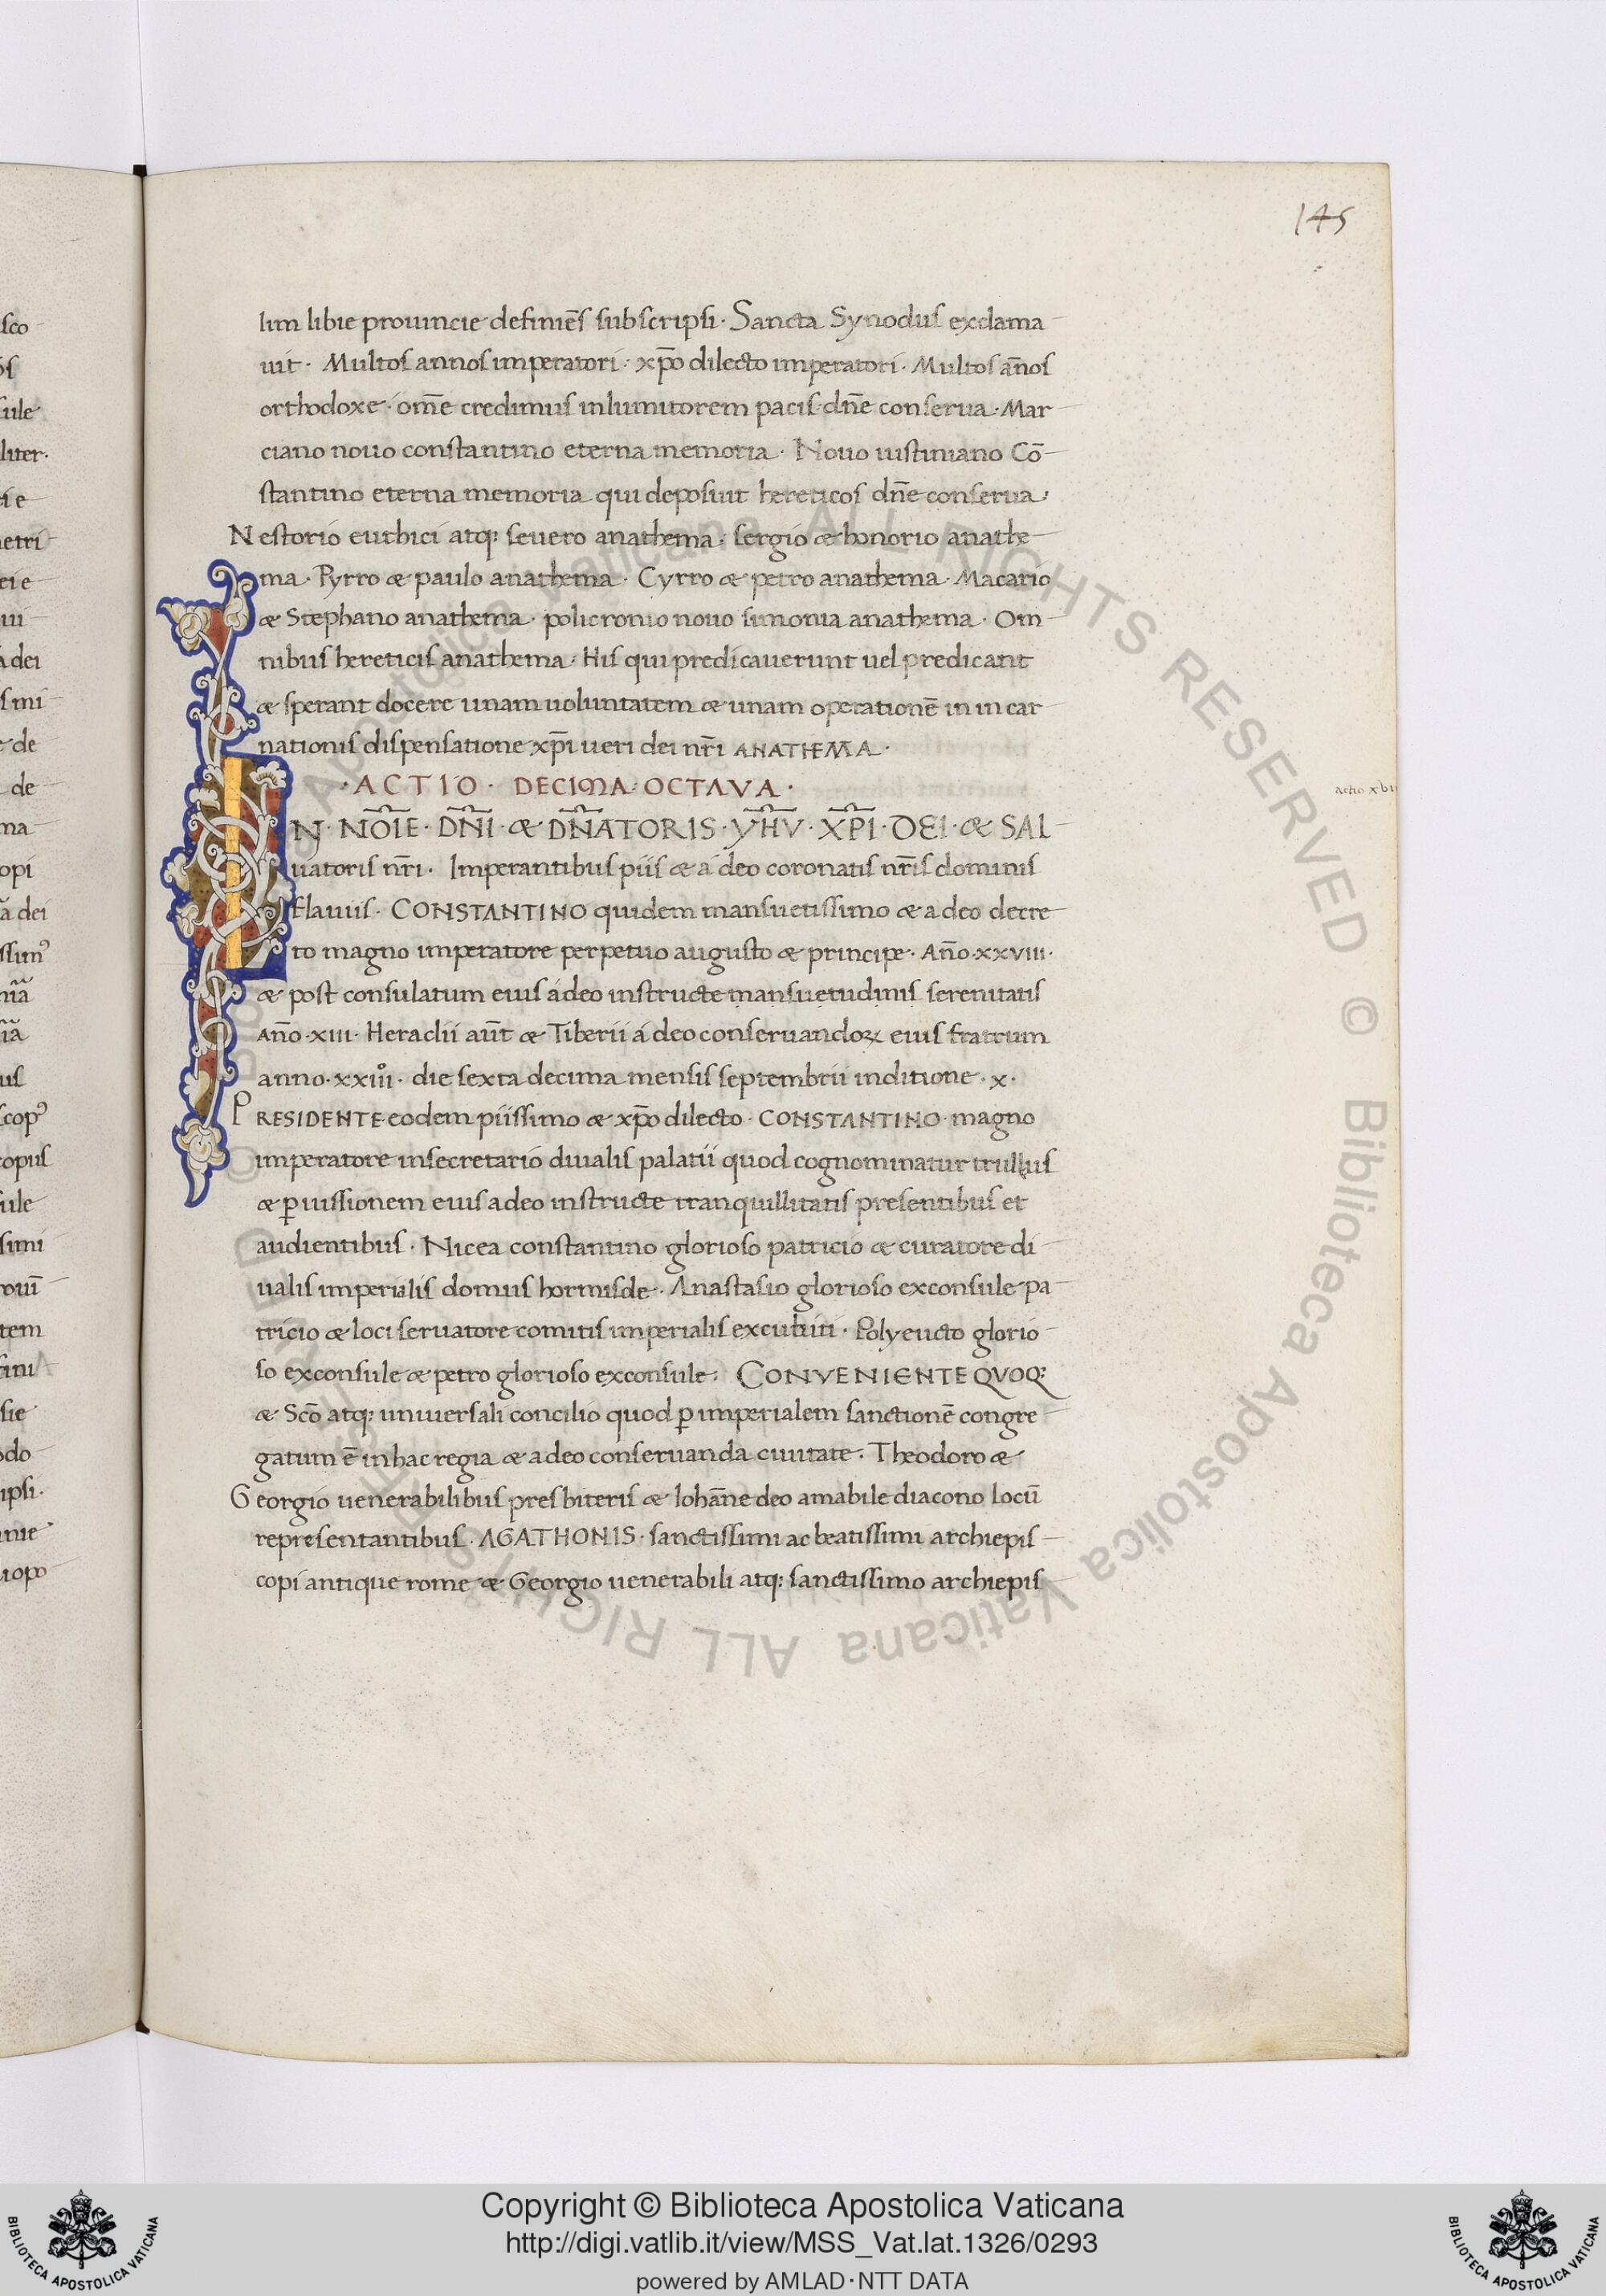 145
lim libie prouincie definiēs subscripsi · Sancta Synodus exclama
uit · Multos annos imperatori · xp̄o dilecto imperatori · Multos an̄os
orthodoxe · om̄e credimus inlumitorem pacis · dn̄e conserua · Mar
ciano nouo constantino eterna memoria · Nouo iustiniano Cō
stantino eterna memoria qui deposuit hereticos dn̄e conserua ·
Nestorio euthici atq; seuero anathema · sergio æ honorio anathe
ma · Pyrro æ paulo anathema · Cyrro æ petro anathema · Macario
æ Stephano anathema · policronio nouo simonia anathema · Om
nibus hereticis anathema · His qui predicauerunt uel predicant
æ sperant docere unam uoluntatem æ unam operationē in incar
nationis dispensatione xp̄i ueri dei nr̄i ANATHEMA ·
· ACTIO · DECIMA · OCTAVA ·
actio xbii
IN · NOĪE · DN̄I · æ DN̄ATORIS · YHV̄ · XP̄I · DEI · æ SAL
uatoris nr̄i · Imperantibus piis æ a deo coronatis nr̄is dominis
Flauiis · CONSTANTINO quidem mansuetissimo æ a deo decre
to magno imperatore perpetuo augusto æ principe · An̄o · xxviii ·
æ post consulatum eius á deo instructe mansuetudinis serenitatis
An̄o · xiii · Heraclii aūt æ Tiberii á deo conseruandoꝝ eius fratrum
anno · xxiii° · die sexta decima mensis septembrii inditione · x ·
PRESIDENTE eodem piissimo æ xp̄o dilecto · CONSTANTINO · magno
imperatore insecretario diualis palatii quod cognominatur trullus
æ ꝑ iussionem eius a deo instructe tranquillitatis presentibus et
audientibus · Nicea constantino glorioso patricio æ curatore di
ualis imperialis domus hormisde · Anastasio glorioso exconsule pa
tricio æ loci seruatore comitis imperialis excubiti · Polyeucto glorio
so exconsule æ petro glorioso exconsule · CONVENIENTE QVOQ;
æ Scō atq; uniuersali concilio quod ꝑ imperialem sanctionē congre
gatum ē in hac regia æ a deo conseruanda ciuitate · Theodoro æ
Georgio uenerabilibus presbiteris æ Iohāne deo amabile diacono locū
representantibus · AGATHONIS · sanctissimi ac beatissimi archiepis
copi antique rome æ Georgio uenerabili atq; sanctissimo archiepis
Copyright © Biblioteca Apostolica Vaticana
http://digi.vatlib.it/view/MSS_Vat.lat.1326/0293
powered by AMLAD·NTT DATA